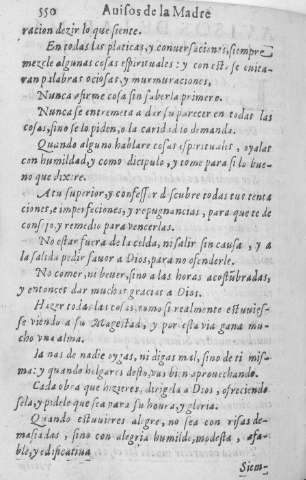 550 Auisos de la Madre
racion dezir lo que siente.
En todas las platicas, y conuersaciones, siempre
mezcle algunas cosas espirituales: y con esto se euita-
ran palabras ociosas, y murmuraciones.
Nunca afirme cosa sin saberla primero.
Nunca se entremeta a dar su parecer en todas las
cosas, sino se lo piden, o la caridad lo demanda.
Quando alguno hablare cosas espirituales, oyalas
con humildad, y como dicipulo, y tome para si lo bue-
no que dixere.
A tu superior, y confessor descubre todas tus tenta
ciones, e imperfeciones, y repugnancias, para que te de
consejo, y remedio para vencerlas.
No estar fuera de la celda, ni salir sin causa, y a
la salida pedir fauor a Dios, para no ofenderle.
No comer, ni beuer, sino a las horas acostubradas,
y entonces dar muchas gracias a Dios.
Hazer todas las cosas, como si realmente estuuies-
se viendo a su Magestad, y por esta via gana mu-
cho vna alma.
Ia mas de nadie oygas, ni digas mal, sino de ti mis-
ma: y quando holgares desto, vas bien aprouechando.
Cada obra que hizieres, dirigela a Dios, ofreciendo
sela, y pidele que sea para su honra, y gloria.
Quando estuuieres alegre, no sea con risas de-
masiadas, sino con alegria humilde, modesta, afa-
ble, y edificatiua
Siem-